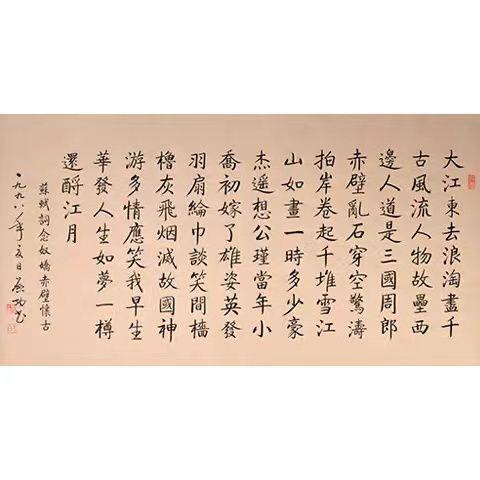 大江東去浪淘盡千
古風流人物故壘西
邊人道是三國周郎
赤壁亂石穿空驚濤
拍岸卷起千堆雪江
山如畫一時多少豪
杰遥想公瑾當年小
喬初嫁了雄姿英發
羽扇綸巾談笑間檣
櫓灰飛烟滅故國神
游多情應笑我早生
華發人生如夢一樽
還酹江月
蘇軾詞念奴嬌赤壁懷古
一九九八年夏日啟功書